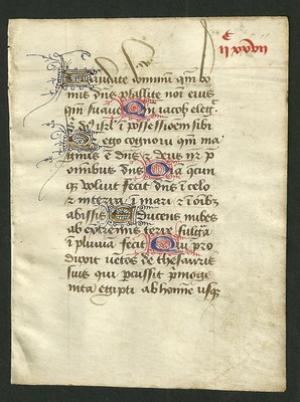 c
ii xxxvii
Laudate dominũ qm̃ bo
nus dñs psallite noĩ eius
qm̃ suave Qm̃ iacob elegit
dñs isrl ĩ possessioem sibi
Q ego cognovi qm̃ ma
dñs z deus nr̃ p
omnibus diis Oĩa quecun
que voluit fecit dñs ĩ celo
z in terra ĩ mari z ĩ oĩbz
abissis Educens nubes
ab extremis terre fulgᵃ
ĩ pluvia fecit Qui pro
ducit vetos de thesauris
suis qui percussit p̃moge
nita egipti ab homine usqz